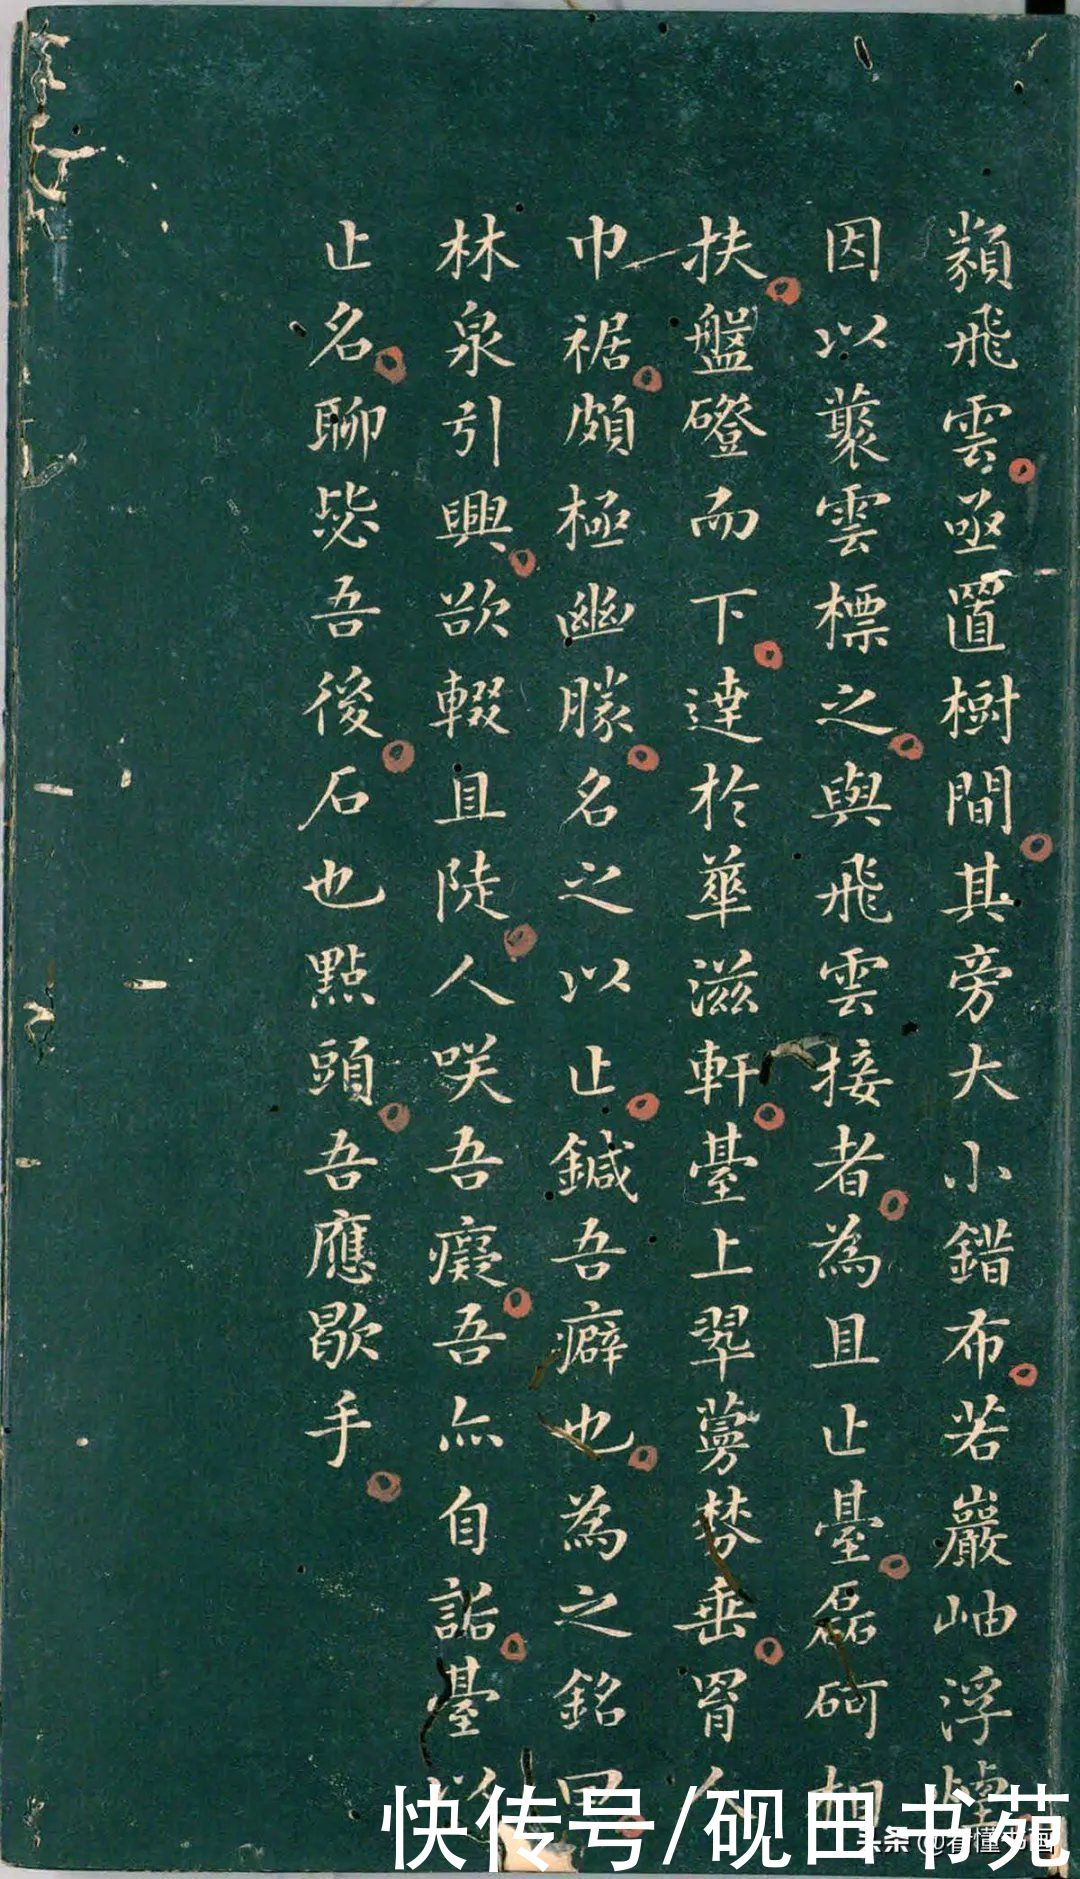 纇飛雲亟置樹間其旁大小錯布若巖岫浮
因以蓑雲標之與飛雲接者為且止臺磊砢相
扶盤磴而下達於華滋軒臺上翠蔓棼垂罥人
巾裾頗極幽勝名之以止鍼吾癖也為之銘曰
林泉引興欲輟且陡人咲吾癡吾亦自詬臺以
止名聊毖吾後石也點頭吾應歇手
快传号/砚田书苑
头条 @看懂书画